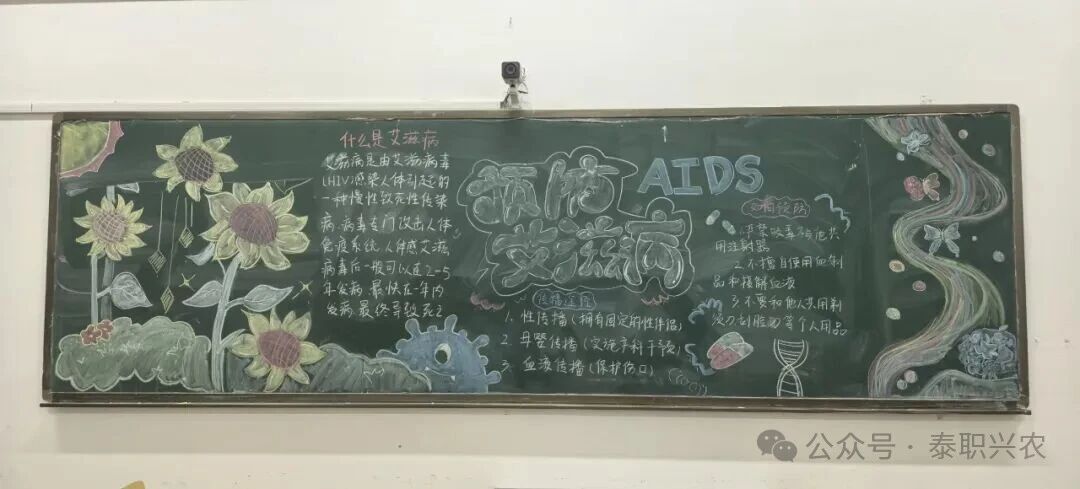 什么是艾滋病
艾滋病是由艾滋病毒
(HIV)感染人体引起的
一种慢性致死性传染
病,病毒专门攻击人体
免疫系统,人体感艾滋
病毒后一般可以在2-5
年发病,最快在一年内
发病,最终导致死亡
预防 AIDS
艾滋病
传播途径
1. 性传播(拥有固定的性伴侣)
2. 母婴传播(实施产科干预)
3. 血液传播(保护伤口)
如何预防
1. 严禁吸毒不与他共
用注射器
2. 不擅自使用血制
品和接触血液
3. 不要和他人共用剃
须刀刮脸刀等个人用品
公众号·泰职兴农